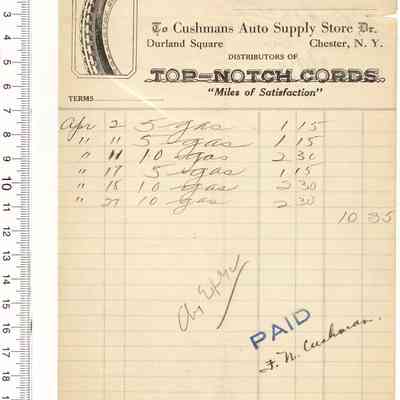 To Cushmans Auto Supply Store Dr.
Durland Square Chester, N. Y.
DISTRIBUTORS OF
TOP-NOTCH CORDS
"Miles of Satisfaction"
TERMS
Apr 2 5 gas 1 15
" 11 5 gas 1 15
" 11 10 gas 2 30
" 17 5 gas 1 15
" 18 10 gas 2 30
" 27 10 gas 2 30
10 35
PAID
F. N. Cushman.
3
4
5
6
7
8
9
10
11
12
13
14
15
16
17
18